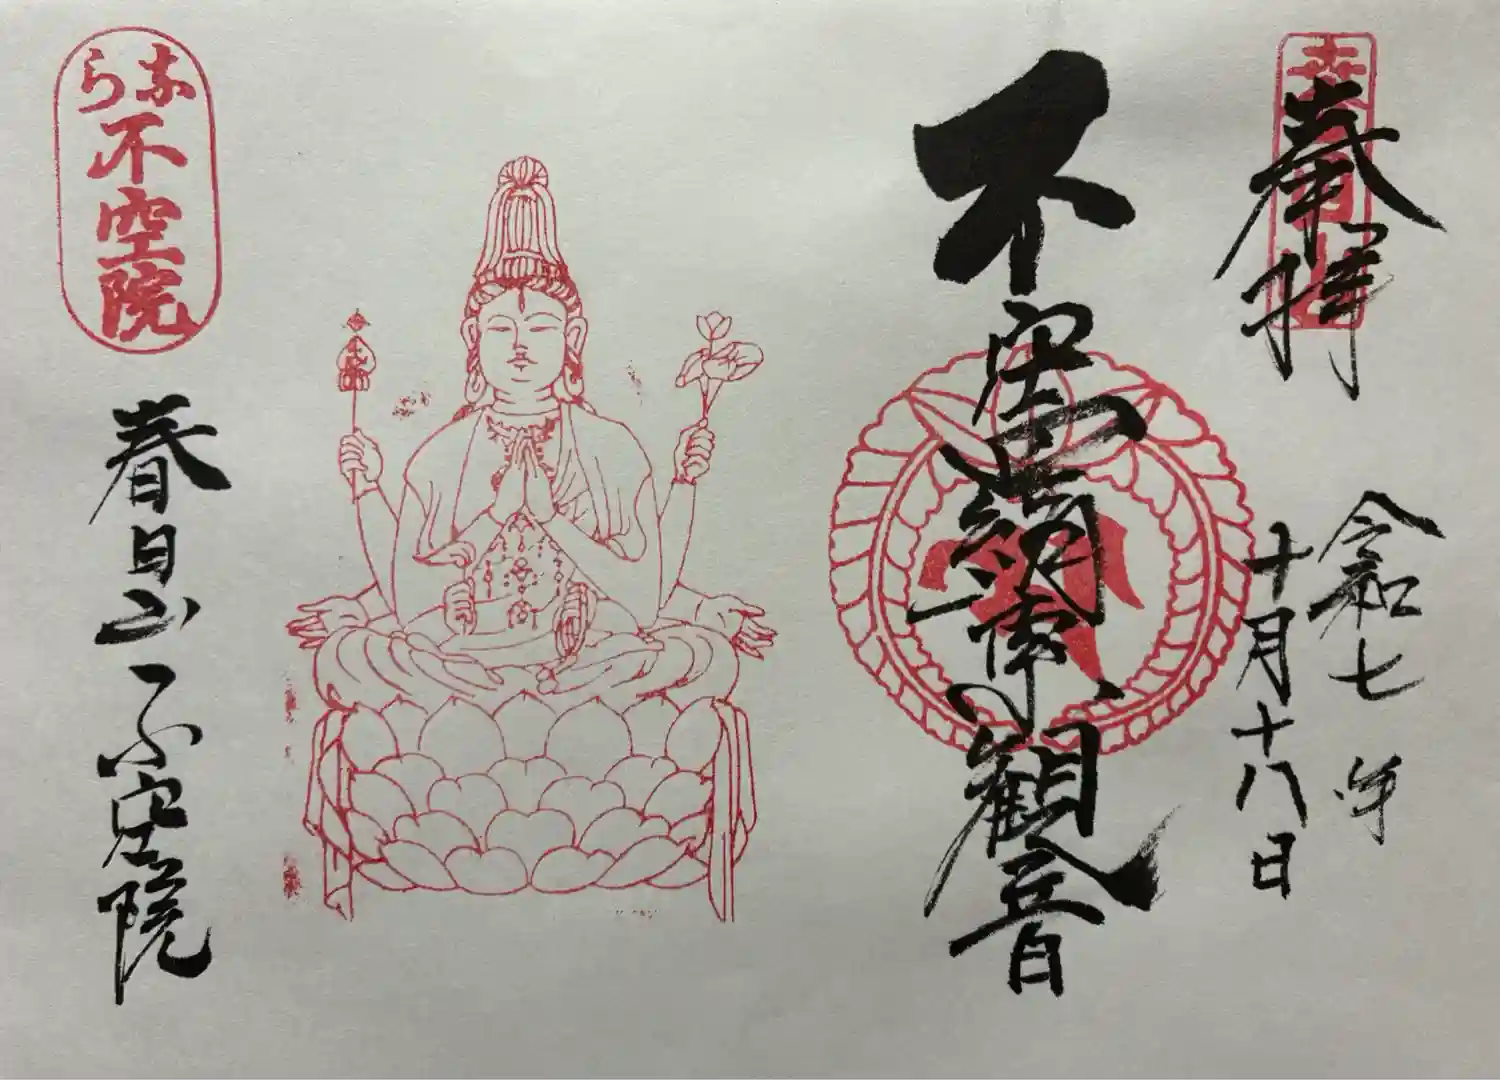 奉拝
春日山
令和七年
十月十八日
不空羂索観音
なら
不空院
春日山 不空院